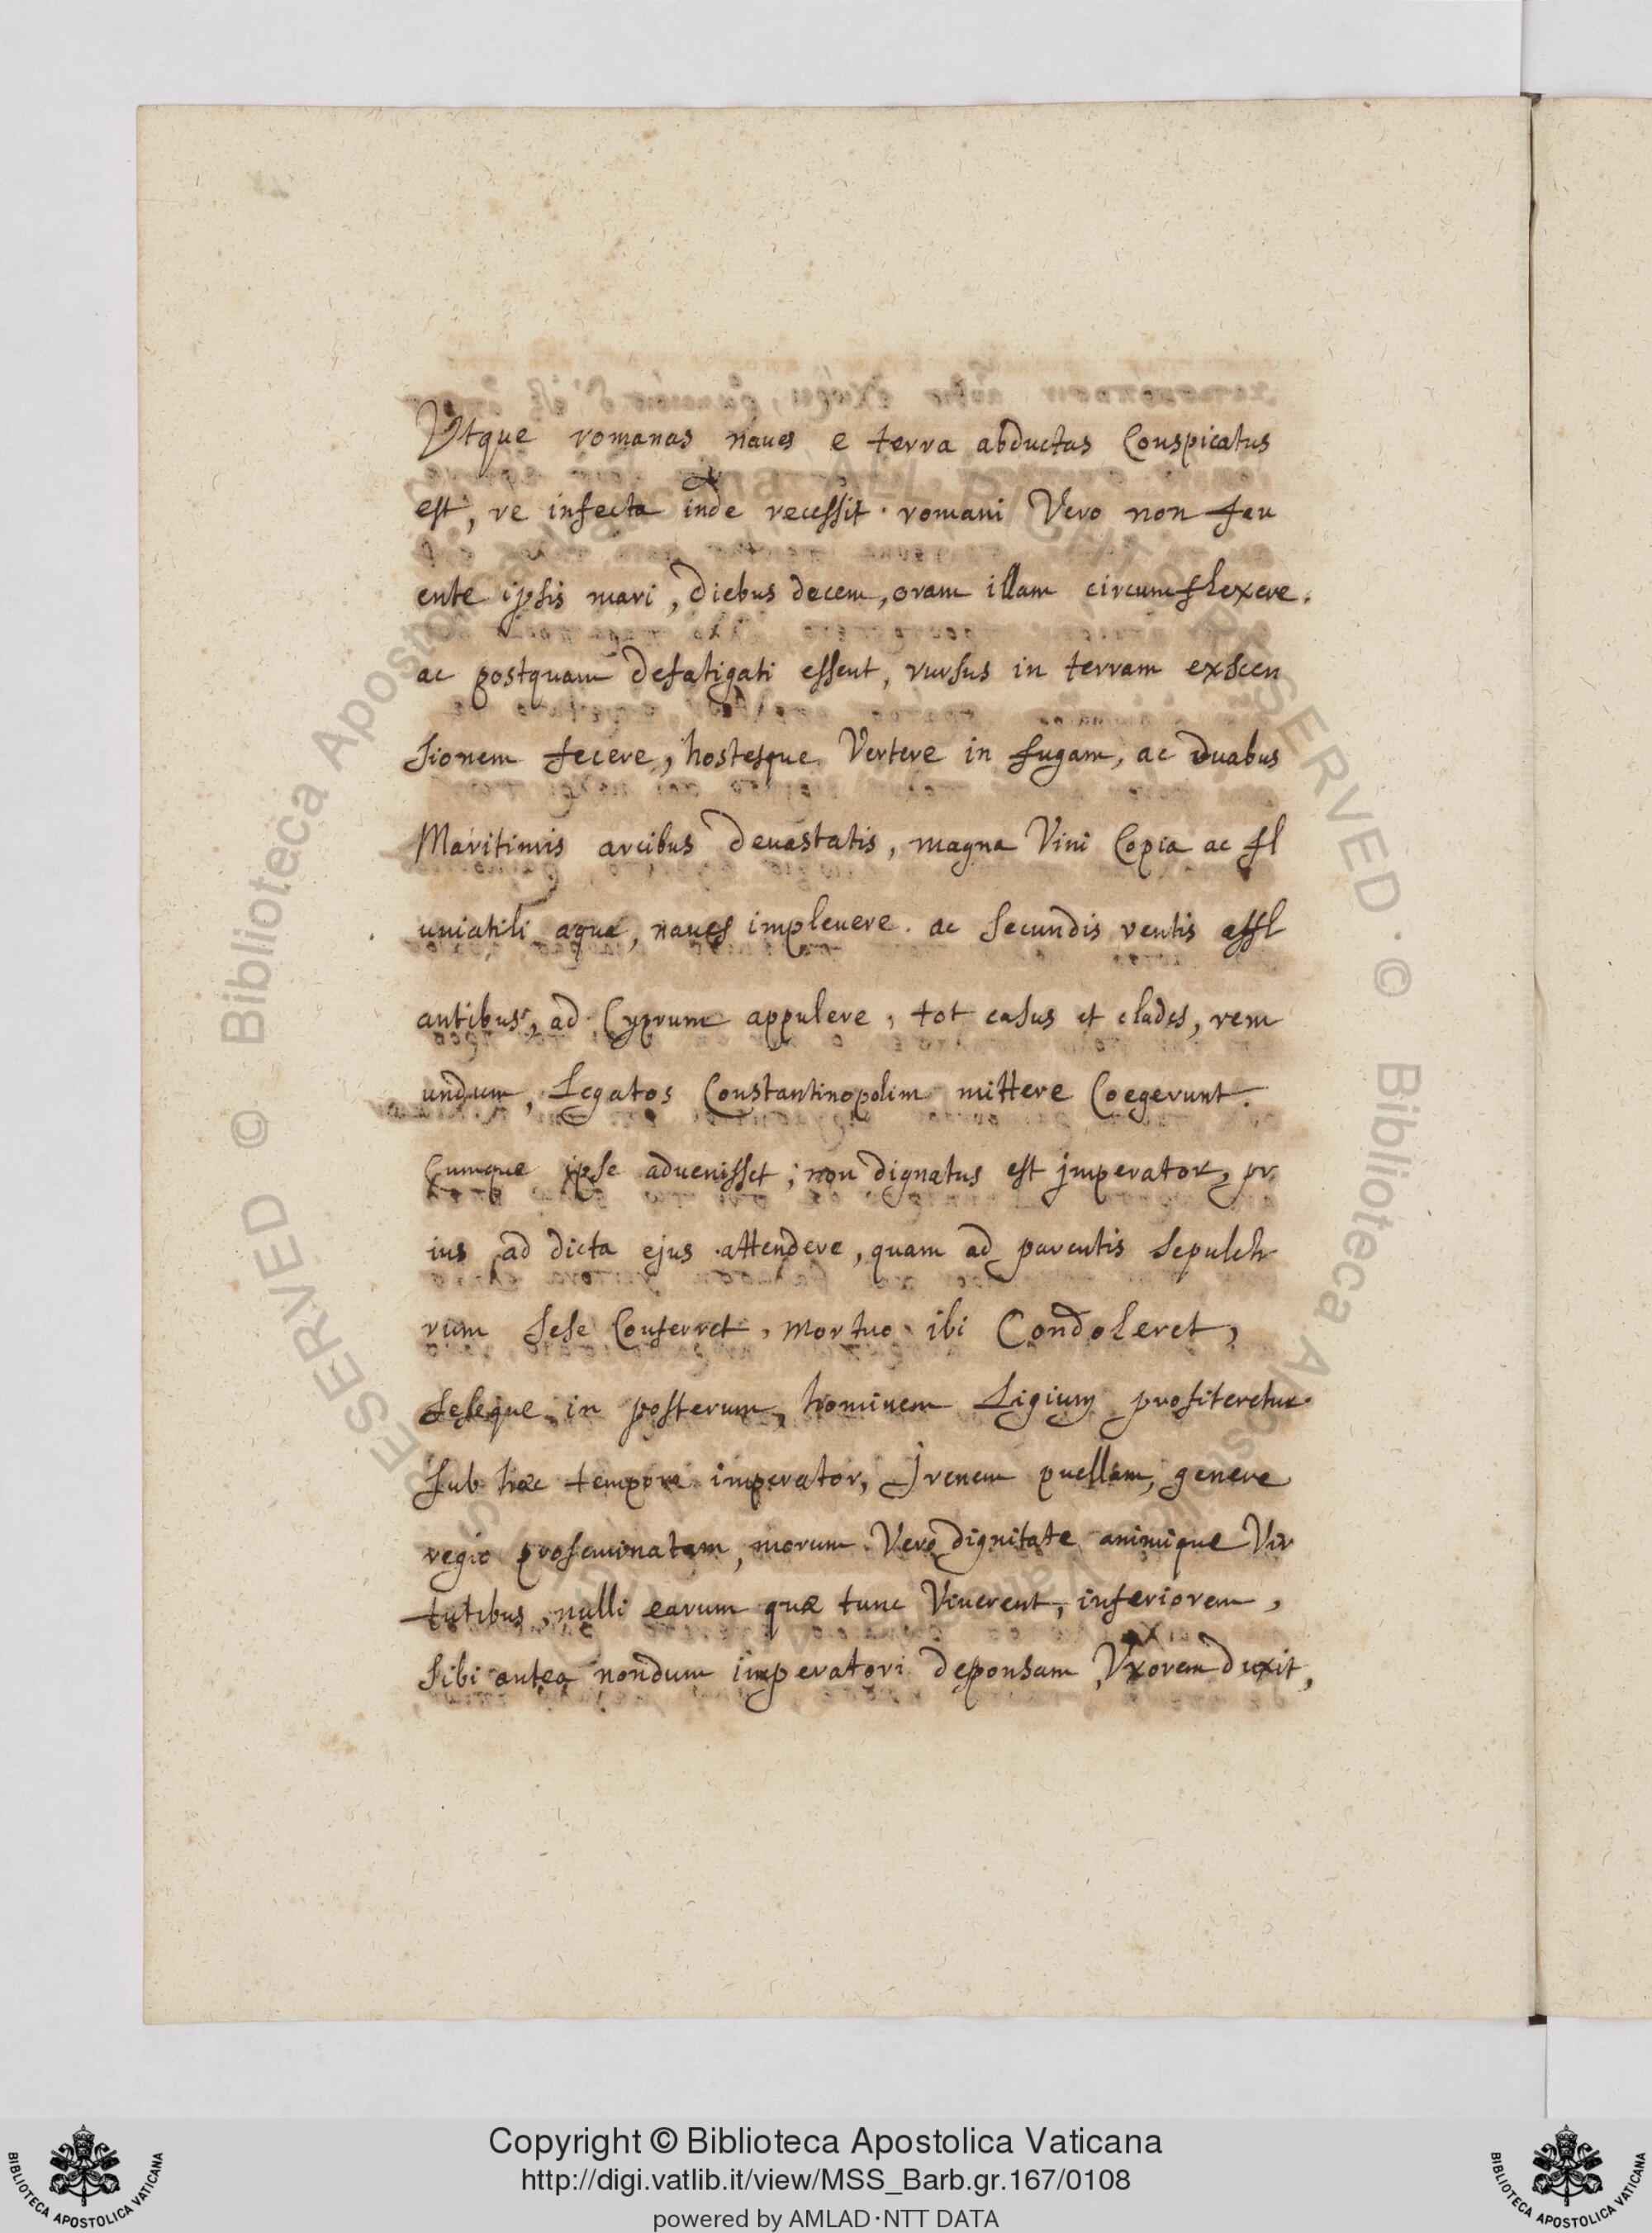 Vtque romanas naues e terra abductas Conspicatus
est, re infecta inde recessit. romani Vero non fau
ente ipsis mari, diebus decem, oram illam circumflexere.
ac postquam defatigati essent, rursus in terram exscen
sionem fecere, hostesque Vertere in fugam, ac duabus
Maritimis arcibus deuastatis, magna Vini Copia ac fl
uuiatili aqua, naues impleuere. ac secundis ventis affl
antibus, ad Cyprum appulere, tot casus et clades, rem
undum, Legatos Constantinopolim mittere Coegerunt.
Cumque ipse aduenisset; non dignatus est imperator, pr
ius ad dicta ejus attendere, quam ad parentis sepulch
rum sese Conferret, mortuo ibi Condoleret,
seseque in posterum, hominem Ligium profiteretur.
sub hoc tempore imperator, Irenem puellam, genere
regio proseminatam, morum Vero dignitate animique Vir
tutibus, nulli earum quæ tunc Viuerent, inferiorem,
sibi antea nondum imperatori deponsam, Vxorem duxit,
© Biblioteca Apostolica Vaticana ALL RIGHTS RESERVED
Copyright © Biblioteca Apostolica Vaticana
http://digi.vatlib.it/view/MSS_Barb.gr.167/0108
powered by AMLAD·NTT DATA
BIBLIOTECA APOSTOLICA VATICANA
BIBLIOTECA APOSTOLICA VATICANA